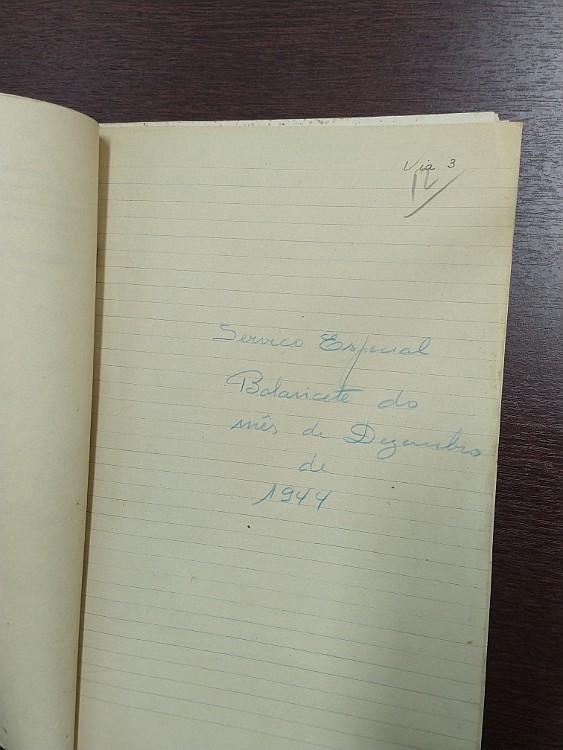 Via 3
Serviço Especial
Balancete do
mês de Dezembro
de
1944